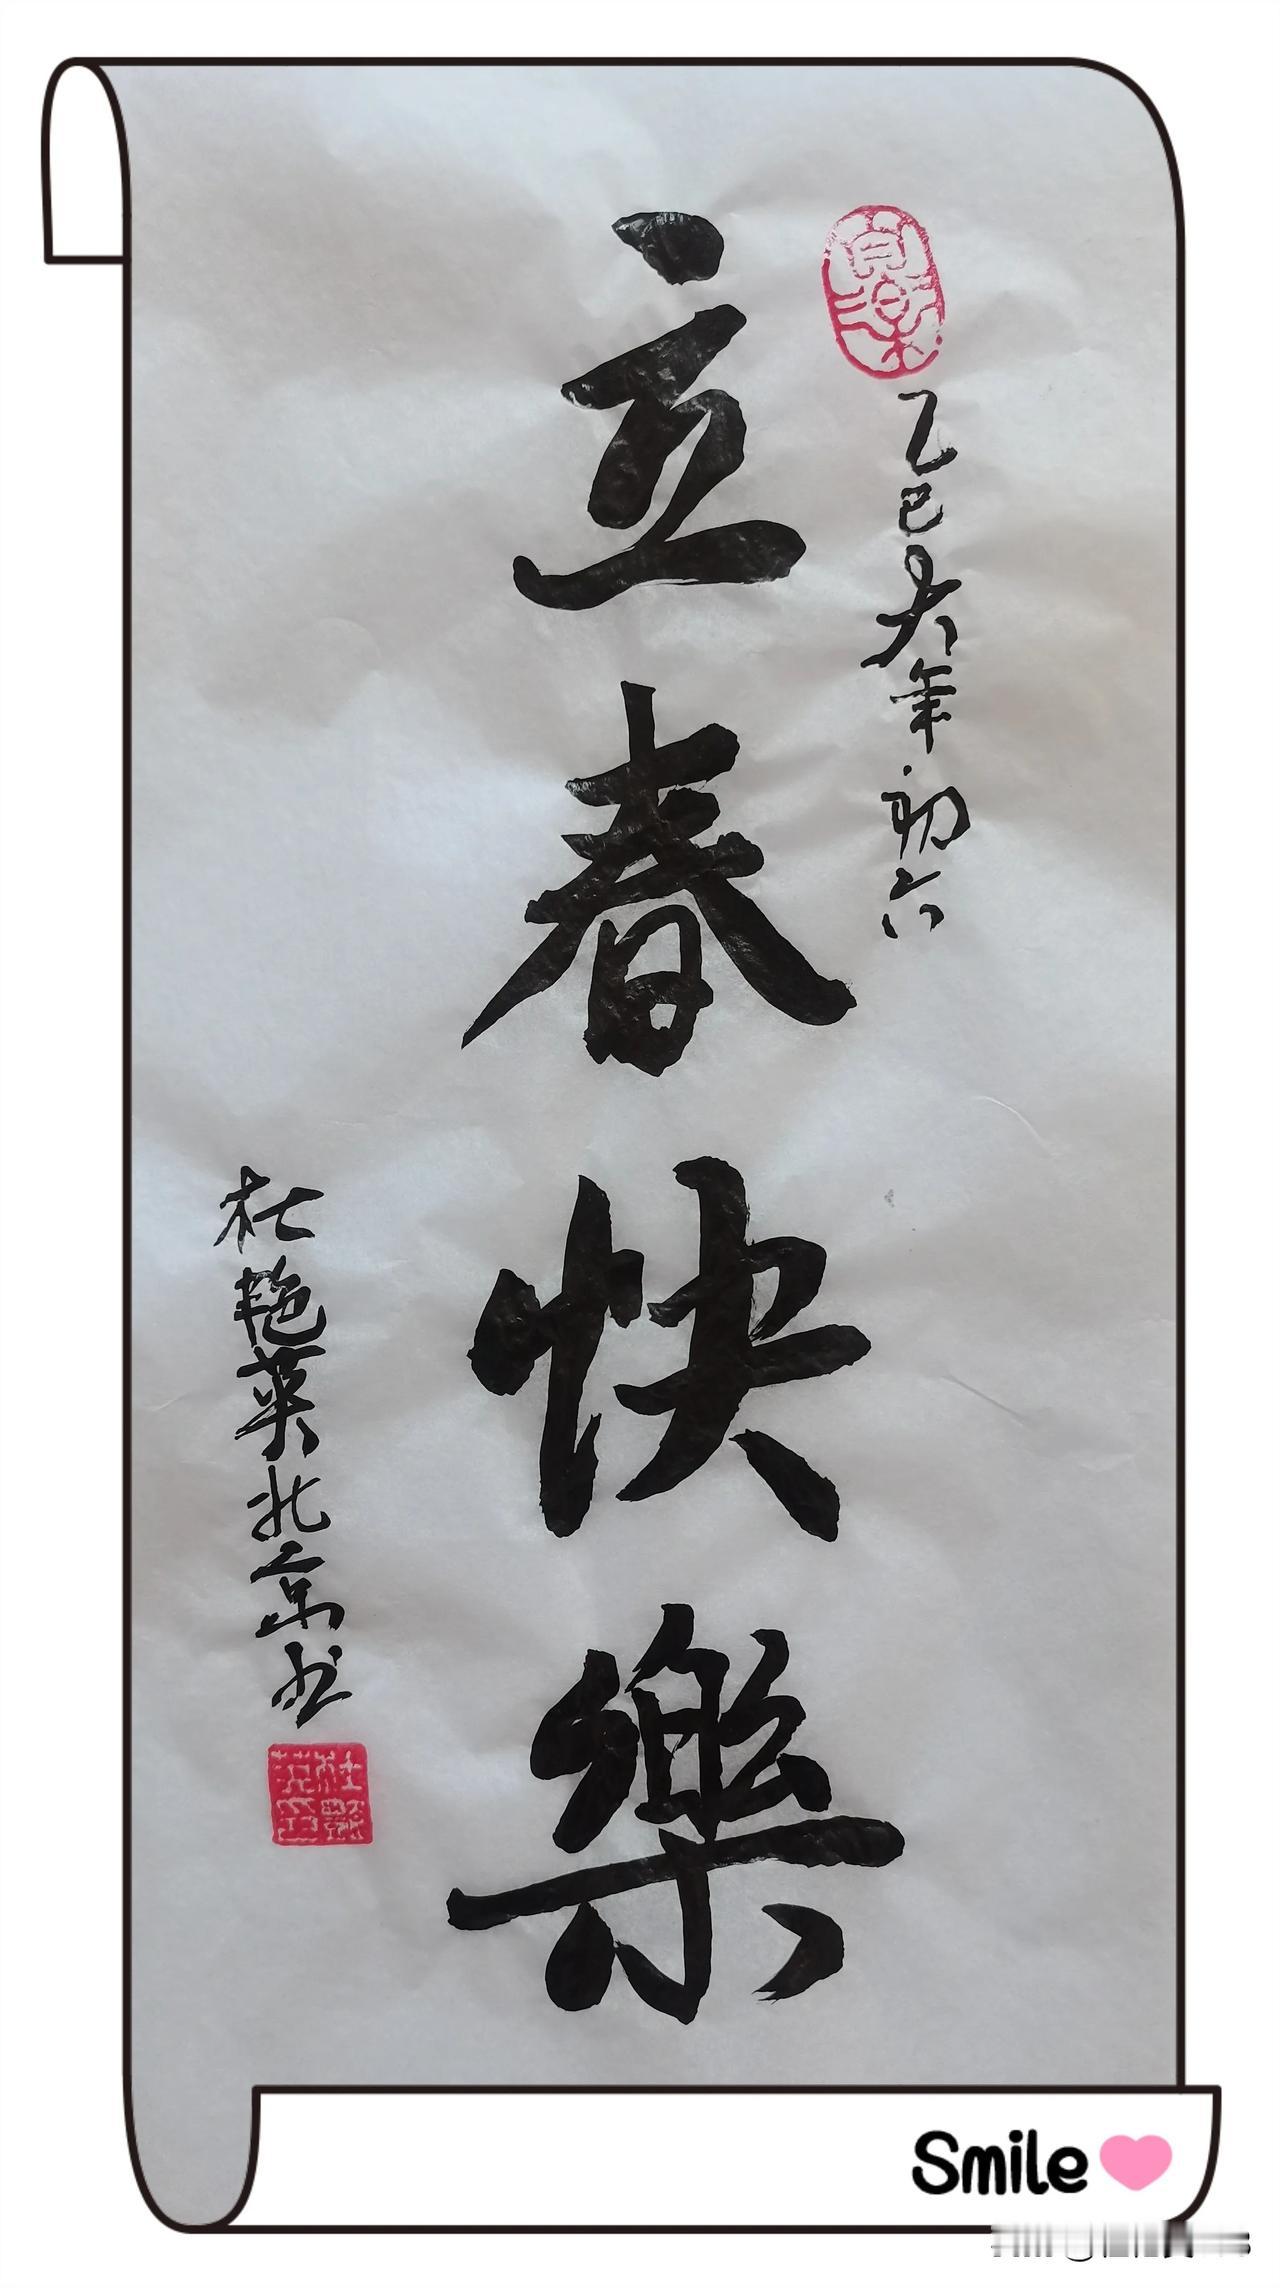 乙巳大年初六
立春快樂
杜艳英北京书
Smile